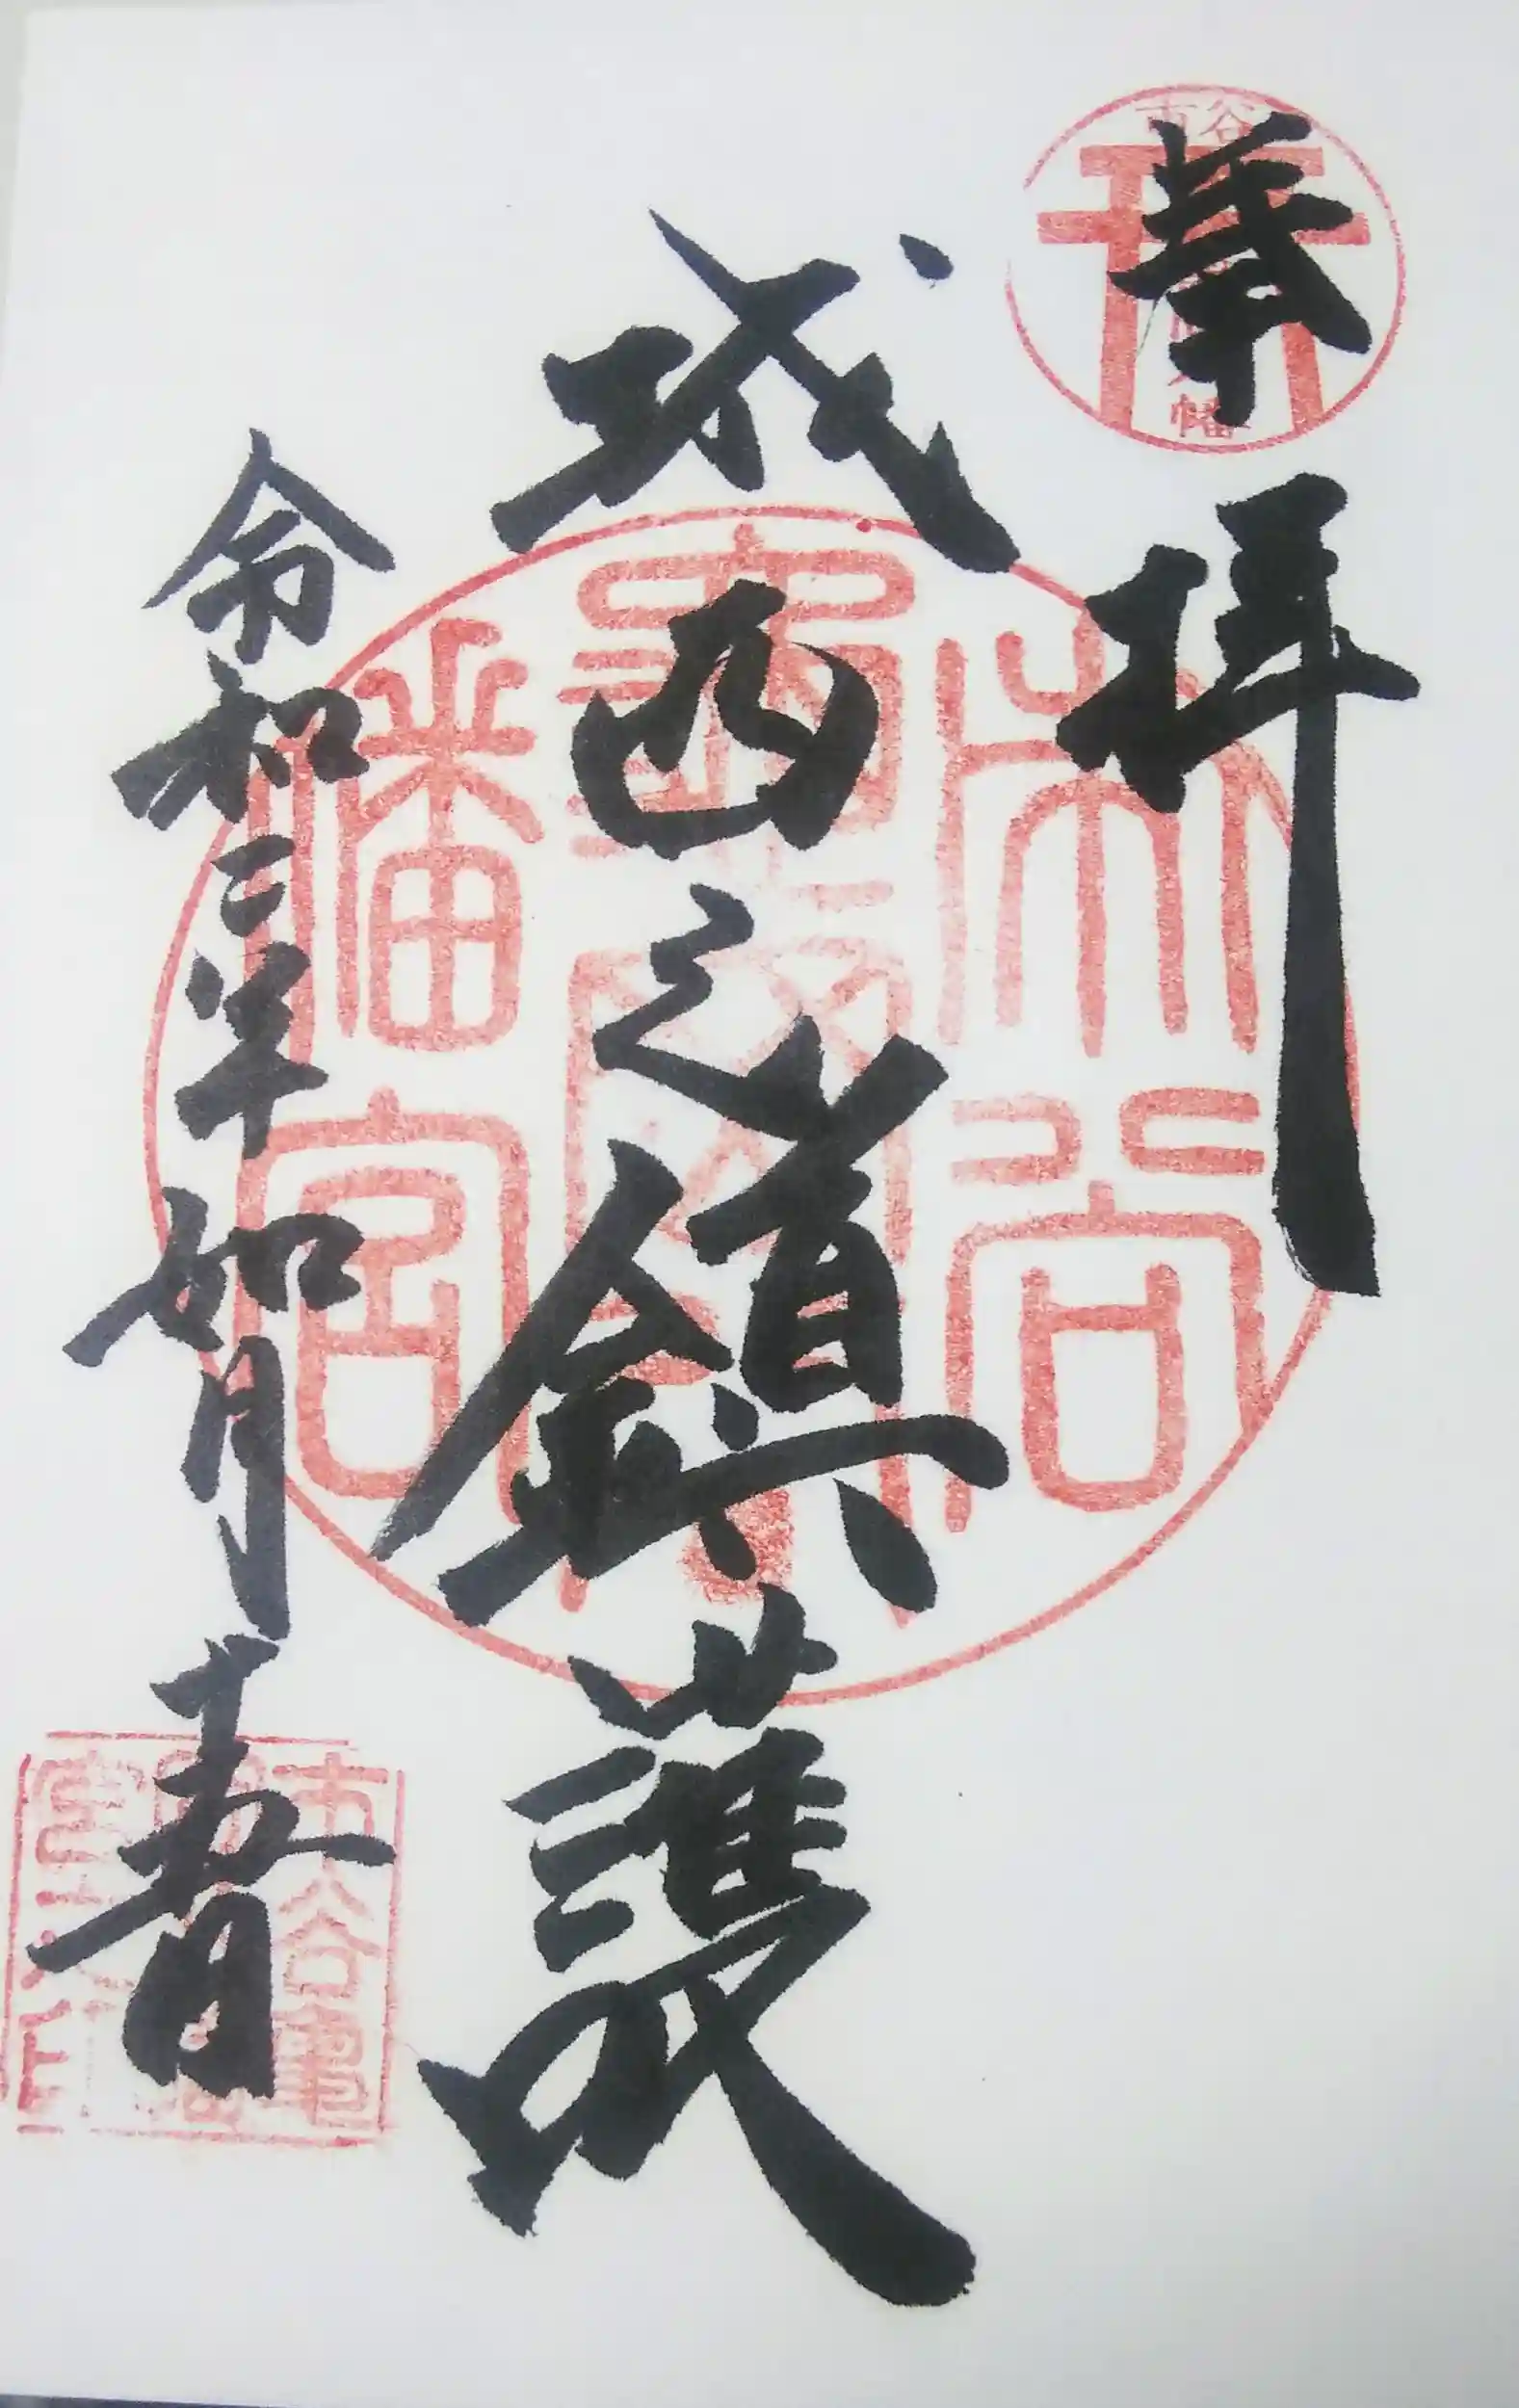 奉拝
市谷亀岡八幡
城西之鎮護
市谷
亀岡八
幡宮
令和二年如月十五日
市谷亀
岡八幡
宮之印